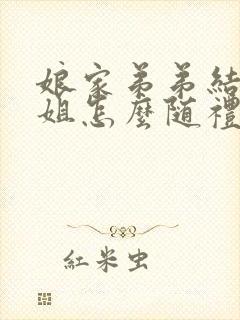 娘家弟弟結
姐怎麼随禮
紅米虫